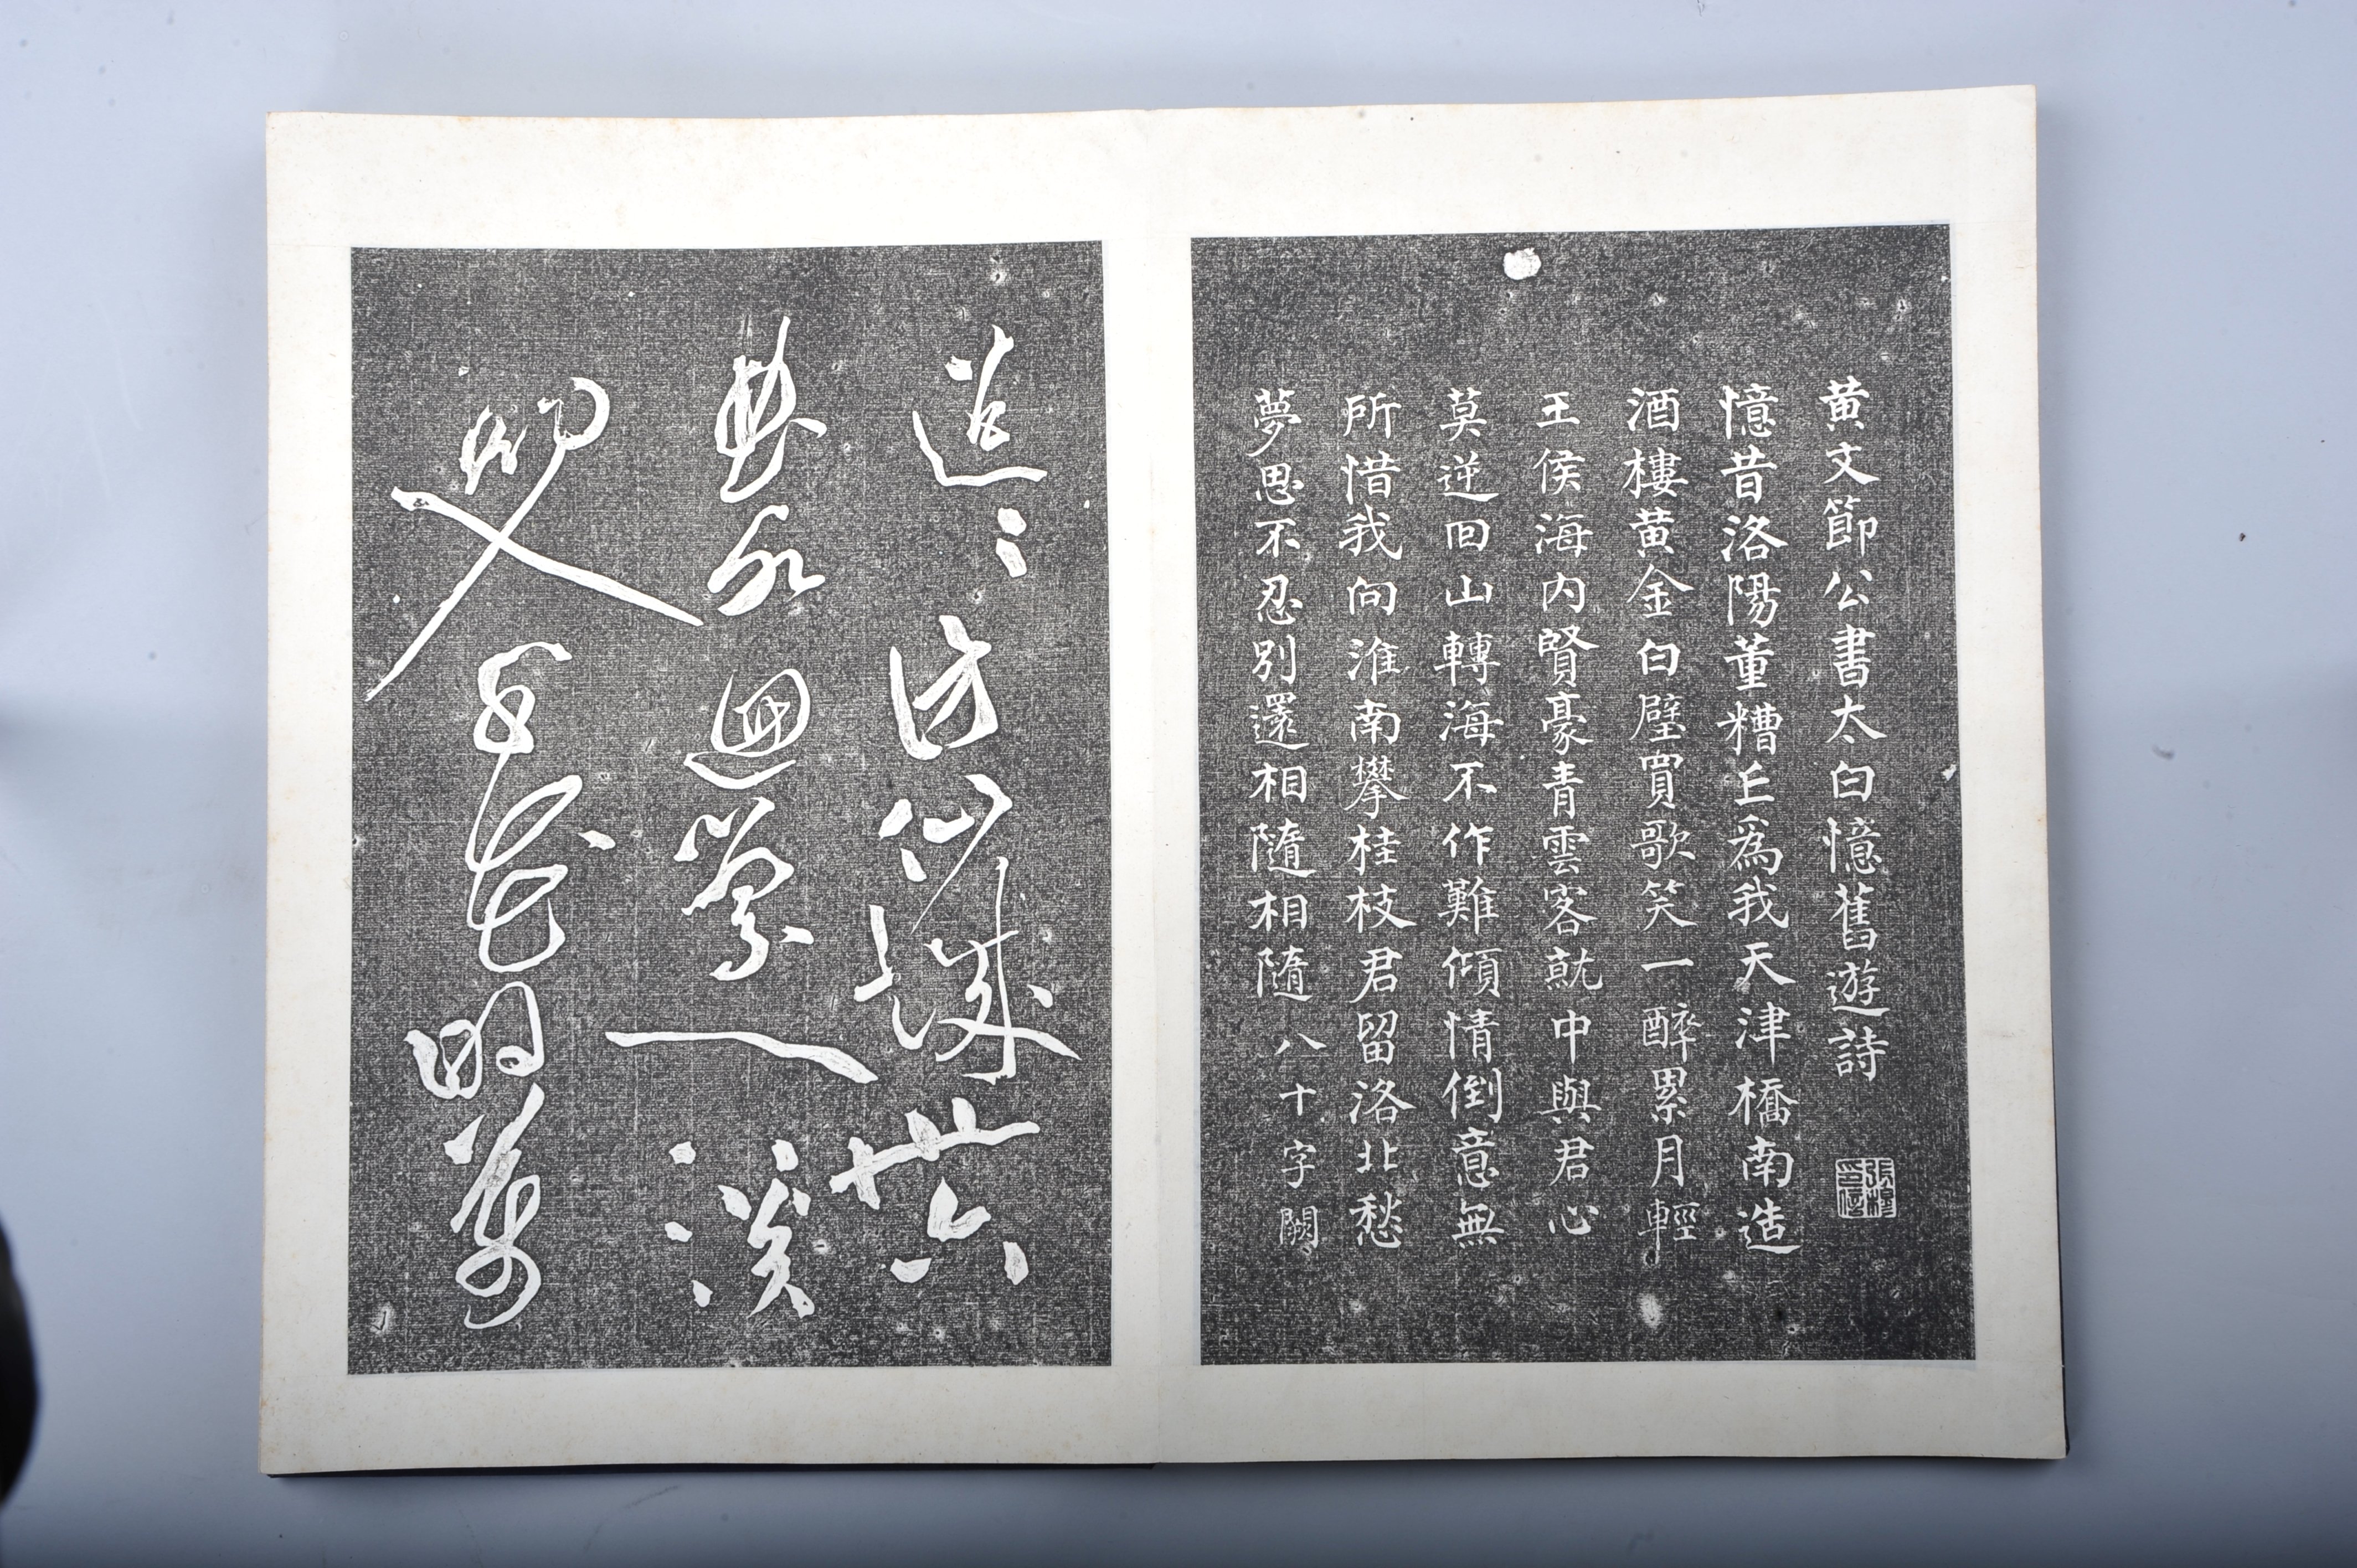 黃文節公書太白憶舊遊詩
張穆印信
憶昔洛陽董糟丘爲我天津橋南造
酒樓黃金白璧買歌笑一醉累月輕
王侯海内賢豪青雲客就中與君心
莫逆回山轉海不作難傾情倒意無
所惜我向淮南攀桂枝君留洛北愁
夢思不忍別還相隨相隨八十字闕
迢〻訪仙城卅六
曲水迴縈一溪
初入千花明萬